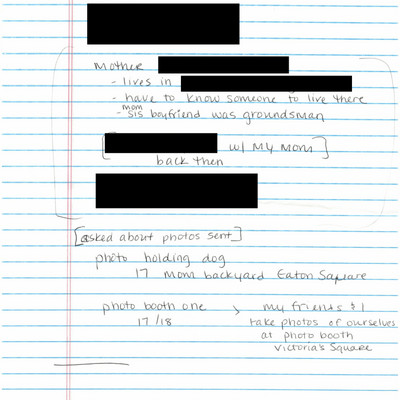 mother
- lives in
- have to know someone to live there
mom
- sis boyfriend was groundsman
[ w/ my mom ]
back then
[asked about photos sent]
photo holding dog
17 mom backyard Eaton Square
photo booth one > my friends & I
17/18 take photos of ourselves
at photo booth
Victoria's Square